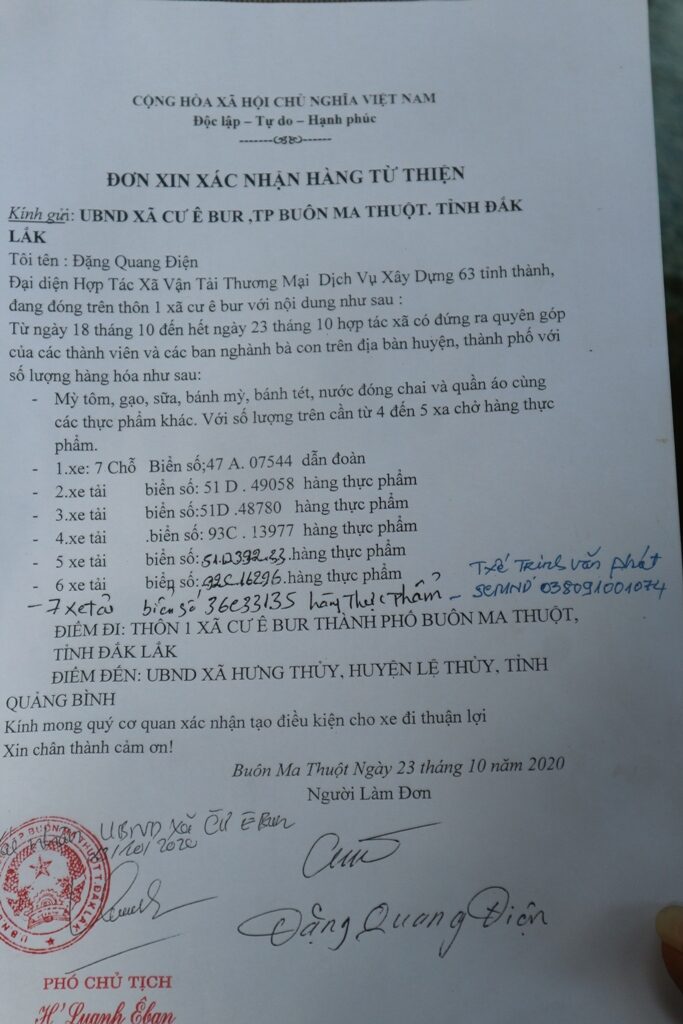 CỘNG HÒA XÃ HỘI CHỦ NGHĨA VIỆT NAM
Độc lập – Tự do – Hạnh phúc
ĐƠN XIN XÁC NHẬN HÀNG TỪ THIỆN
Kính gửi: UBND XÃ CƯ Ê BUR ,TP BUÔN MA THUỘT. TỈNH ĐẮK
LẮK
Tôi tên : Đặng Quang Điện
Đại diện Hợp Tác Xã Vận Tải Thương Mại Dịch Vụ Xây Dựng 63 tỉnh thành,
đang đóng trên thôn 1 xã cư ê bur với nội dung như sau :
Từ ngày 18 tháng 10 đến hết ngày 23 tháng 10 hợp tác xã có đứng ra quyên góp
của các thành viên và các ban nghành bà con trên địa bàn huyện, thành phố với
số lượng hàng hóa như sau:
- Mỳ tôm, gạo, sữa, bánh mỳ, bánh tét, nước đóng chai và quần áo cùng
các thực phẩm khác. Với số lượng trên cần từ 4 đến 5 xa chở hàng thực
phẩm.
- 1.xe: 7 Chỗ Biển số;47 A. 07544 dẫn đoàn
- 2.xe tải biển số: 51 D . 49058 hàng thực phẩm
- 3.xe tải biển số:51D .48780 hàng thực phẩm
- 4.xe tải .biển số: 93C . 13977 hàng thực phẩm
- 5 xe tải biển số:51D392.33.hàng thực phẩm
- 6 xe tải biển số:92C16296.hàng thực phẩm
- 7 xe tải biển số 36C33135 hàng thực phẩm - Txế Trinh văn phát
SCMND 038091001074
ĐIỂM ĐI: THÔN 1 XÃ CƯ Ê BUR THÀNH PHỐ BUÔN MA THUỘT,
TỈNH ĐẮK LẮK
ĐIỂM ĐẾN: UBND XÃ HƯNG THỦY, HUYỆN LỆ THỦY, TỈNH
QUẢNG BÌNH
Kính mong quý cơ quan xác nhận tạo điều kiện cho xe đi thuận lợi
Xin chân thành cảm ơn!
Buôn Ma Thuột Ngày 23 tháng 10 năm 2020
Người Làm Đơn
UBND xã Cư Ê Bur
/10/2020
Đặng Quang Điện
PHÓ CHỦ TỊCH
H' Luanh Êban